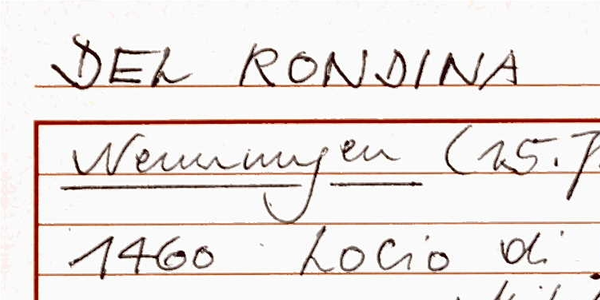 DEL RONDINA
Nennungen (25.7.
1460 Locio di